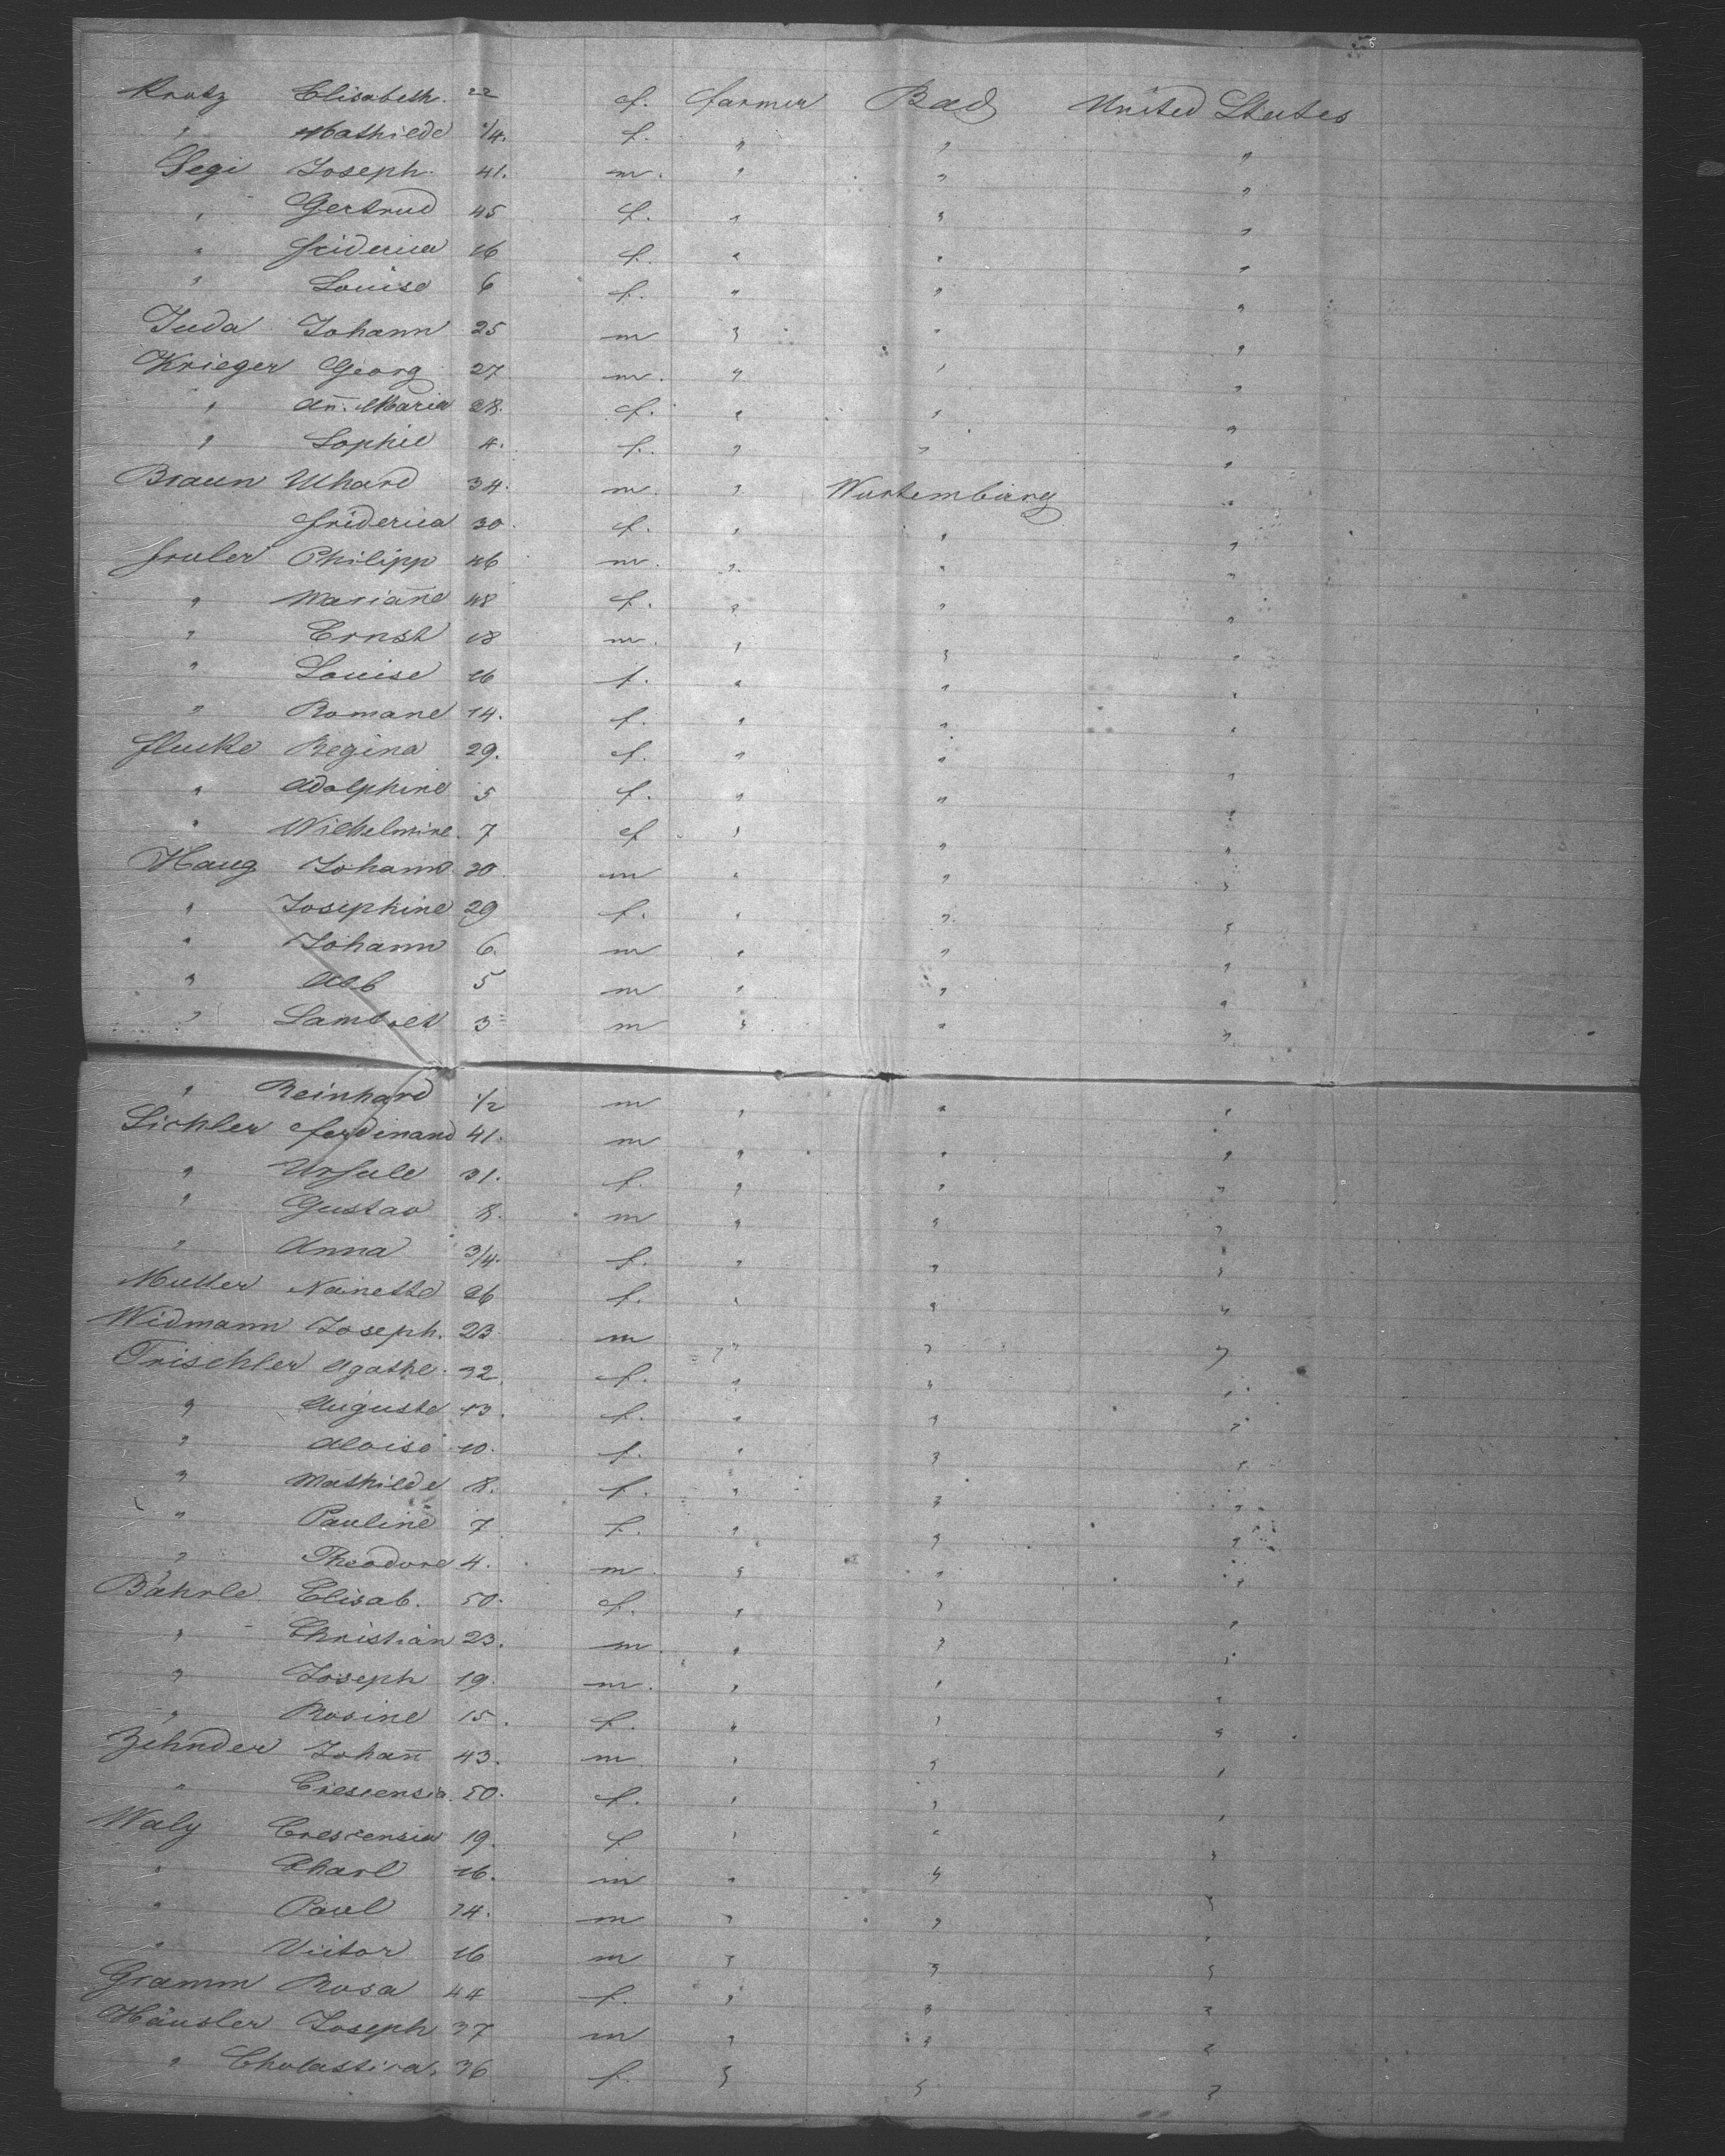 Kratz Elisabeth. 22 f. farmer Bad United States
" Mathilde 1/4. f. " " "
Segi Joseph. 41. m. " " "
" Gertrud 45 f. " " "
" Friderica 16 f. " " "
" Louise 6 f. " " "
Juda Johann 25 m " " "
Krieger Georg 27 m. " " "
" An̄. Maria 28. f. " " "
" Sophie 4. f. " " "
Braun 34. m. " Wurtemburg "
Friderica 30. f. " " "
Fruler Philipp 46 m. " " "
" Marian̄e 48 f. " " "
" Ernst 18 m. " " "
" Louise 16 f. " " "
" Romane 14. f. " " "
Flucke Regina 29. f. " " "
" Adolphine 5 f. " " "
" Wilhelmine. 7 f " " "
Haug Johann 30 m " " "
" Josephine 29 f. " " "
" Johann 6. m " " "
" 5 m " " "
" Lambret 3 m " " "
" Reinhard 1/2 m " " "
Sichler Ferdinand 41. m " " "
" Ursule 31. f. " " "
" Gustav 8. m " " "
" Anna 3/4. f. " " "
Muller Nanette 26 f. " " "
Widmann Joseph. 23 m " " "
Trischler Agathe. 32. f. " " "
" Auguste 13. f. " " "
" Aloise 10. f. " " "
" Mathilde 8. f. " " "
" Pauline 7 f. " " "
" Theodore 4. m " " "
Bährle Elisab. 50. f. " " "
" Christian 23. m " " "
" Joseph 19. m. " " "
" Rosine 15. f. " " "
Zehnder Johan̄ 43. m " " "
" Cresiensia. 50. f. " " "
Waly Crescensia 19. f " " "
" Charl 16. m " " "
" Paul 14. m " " "
" Victor 16 m " " "
Gramm Rosa 44 f. " " "
Häusler Joseph 37 m " " "
" Cholastica. 36 f. " " "